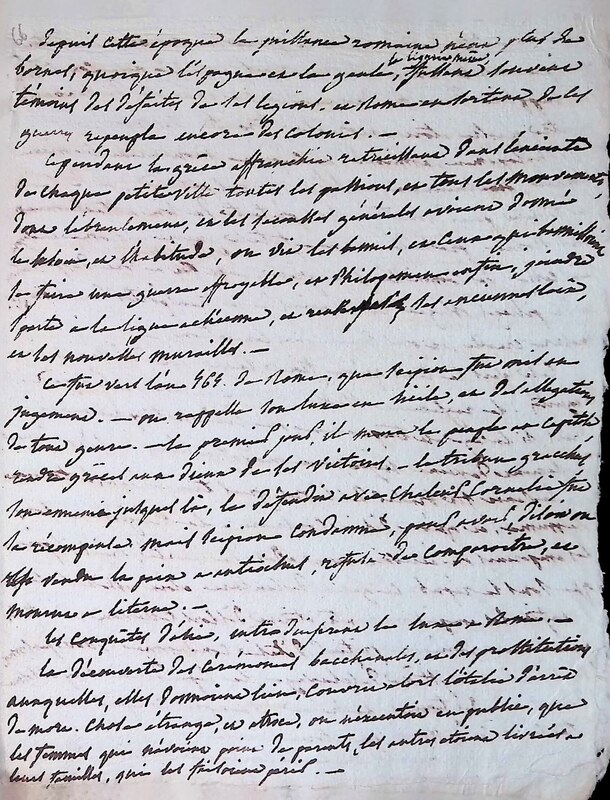 depuis cette époque la puissance romaine n'eut plus de
bornes, quoique l'espagne et la gaule, la ligurie même, fussent souvent
témoins des défaites de ses legions, et Rome en sortant de ses
guerres repeupla encore des colonies. —
Cependant la grèce affranchie retrouvait dans l'enceinte
de chaque petite ville toutes les passions, et tous les mouvements
dont l'ébranlement, et les secousses générales avaient donné
le besoin, et l'habitude, on vit les bannis, et ceux qui bannissaient
se faire une guerre effroyable, et Philopemen enfin, joindre
sparte a la ligue achéenne, et ses anciennes loix,
et ses nouvelles murailles. —
Ce fut vers l'an 464. de Rome, que scipion fut mis en
jugement. — on rappella son luxe en sicile, et des allegations
de tout genre. — le premier jour, il mena le peuple au capitole
rendre grâces aux dieux de ses victoires. — le tribun gracchus
son ennemi jusques là, le défendit avec chaleur, Cornelie fut
la récompense mais scipion condamné, pour avoir, disoit on
vendu la paix a antiochus, refusa de comparoitre, et
mourut a literne. —
les conquêtes d'asie, introduisirent le luxe a Rome. —
la découverte des cérémonies bacchanales, et des prostitutions
auxquelles, elles donnoient lieu, couvrit alors l'italie d'arrêts
de mort. chose étrange, et atroce, on n'exécuta en public, que
les femmes qui n'avoient point de parents, les autres étoient livrées a
leurs familles, qui les faisoient périr. —